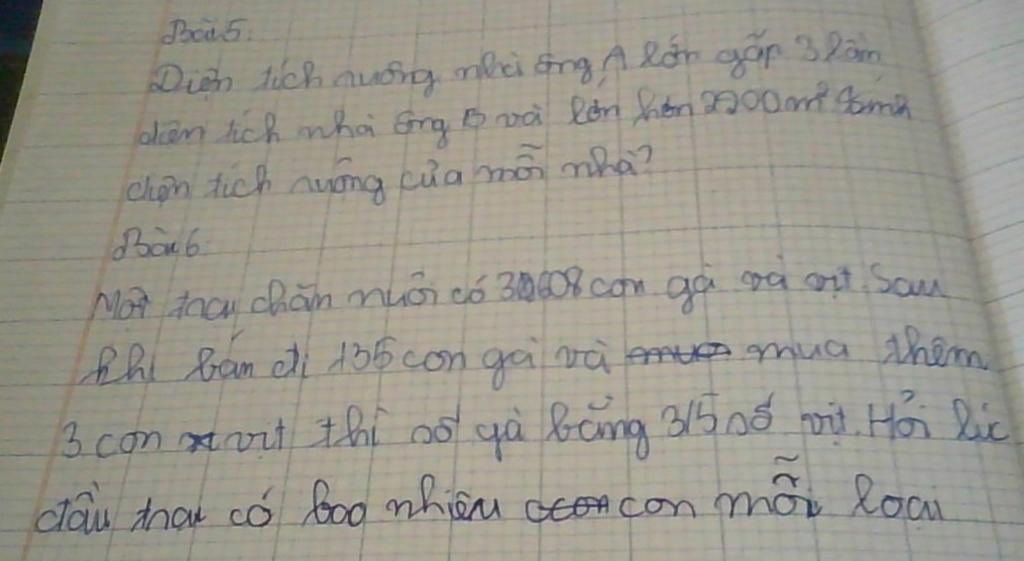 Bài 5.
Diện tích ruộng nhà ông A lớn gấp 3 lần
diện tích nhà ông B và lớn hơn 2200m² tính
diện tích ruộng của mỗi nhà?
Bài 6.
Một trại chăn nuôi có con gà và vịt. Sau
khi bán đi 135 con gà và mua thêm
3 con vịt thì số gà bằng 3/5 số vịt. Hỏi lúc
đầu trại có bao nhiêu con mỗi loại